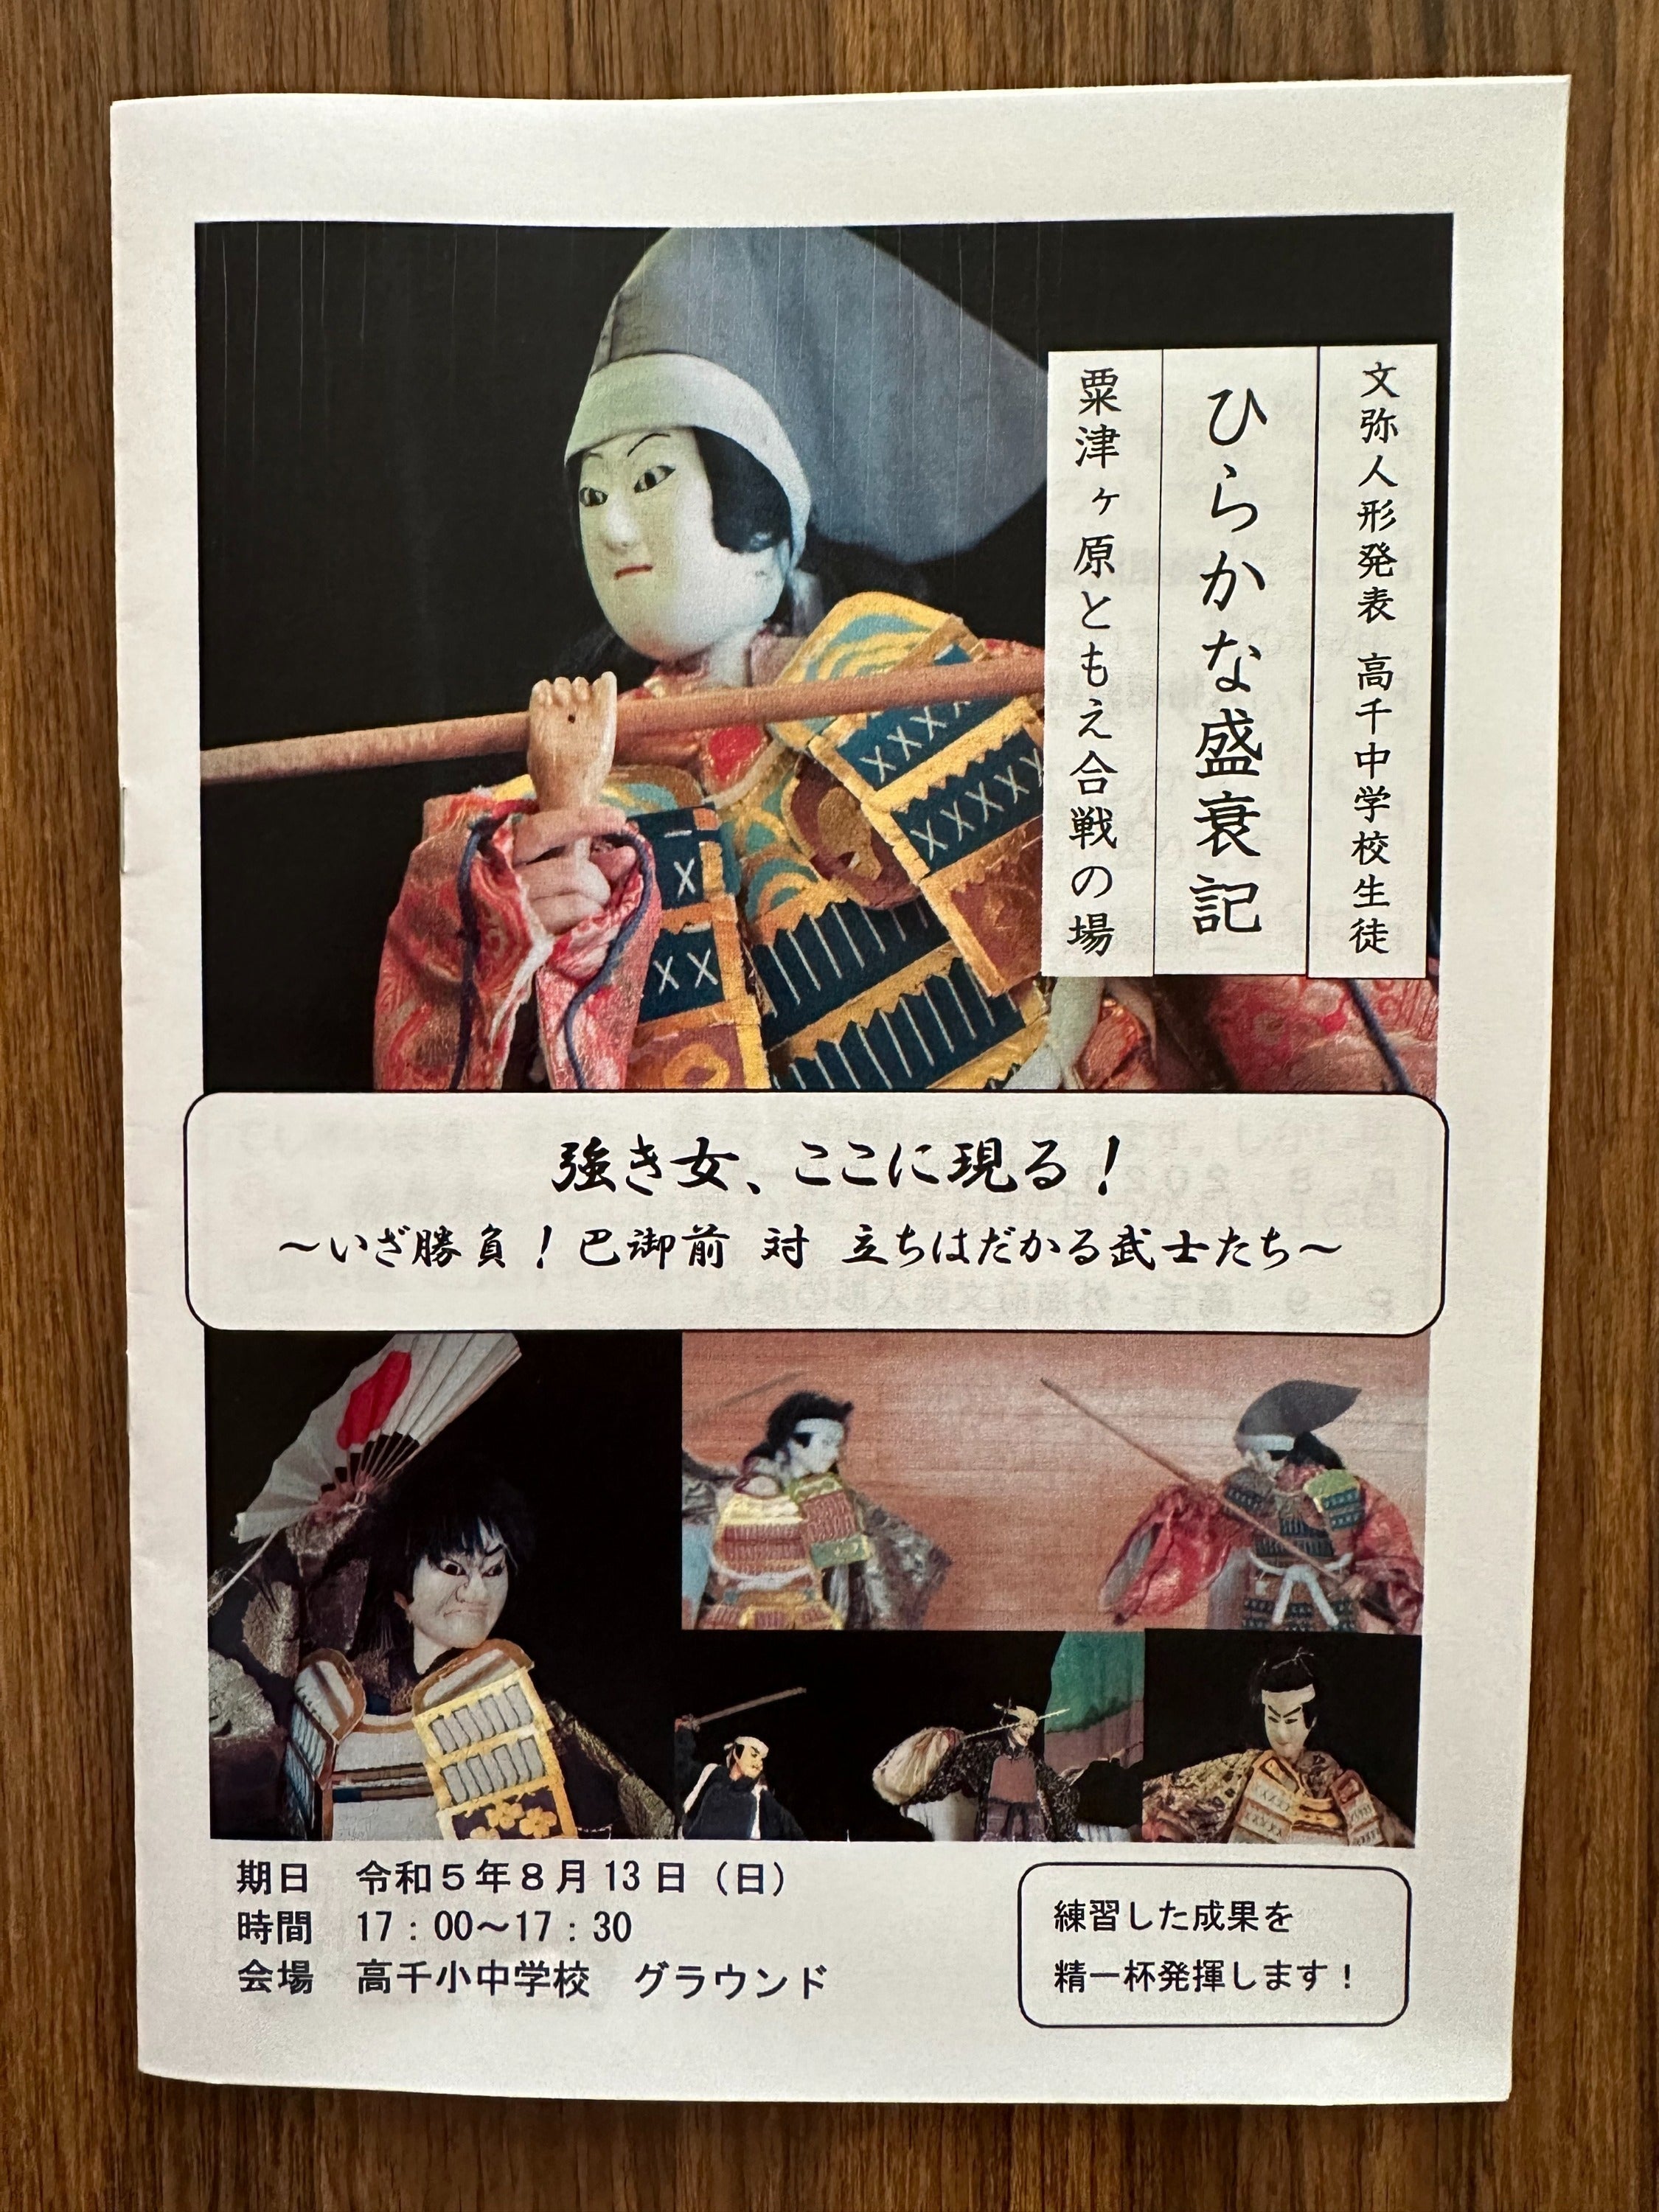 文弥人形発表 高千中学校生徒
ひらかな盛衰記
粟津ヶ原ともえ合戦の場
強き女、ここに現る！
～いざ勝負！巴御前 対 立ちはだかる武士たち～
期日 令和５年８月13日（日）
時間 17：00～17：30
会場 高千小中学校 グラウンド
練習した成果を
精一杯発揮します！